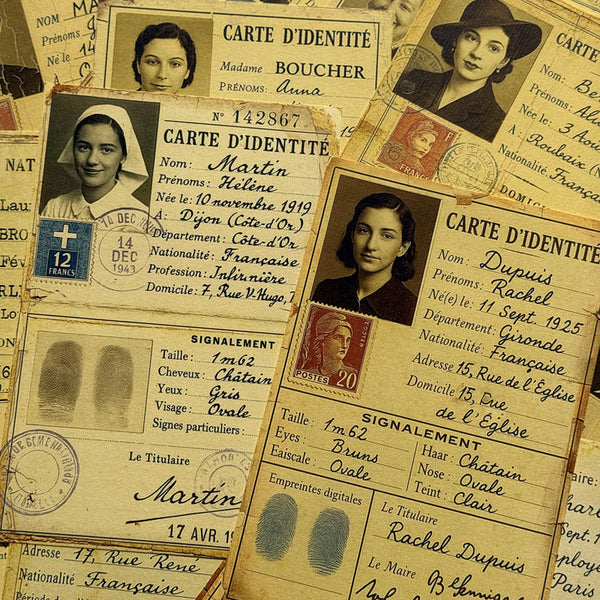 NOM: MA
Prénoms
Née le: 14
CARTE D'IDENTITÉ
Madame BOUCHER
PRÉNOMS: Anna
CARTE
Nom:
Prénoms:
Née le: 3 Août
A: Roubaix
Nationalité: Française
DOMIC
NAT
Lau
BRO
Fév
ARL
N° 142867
CARTE D'IDENTITÉ
Nom: Martin
Prénoms: Hélène
Née le: 10 novembre 1919
A: Dijon (Côte-d'Or)
Département: Côte-d'Or
Nationalité: Française
Profession: Infirmière
Domicile: 7, Rue V. Hugo,
14 DEC
14
DEC
1943
12
FRANCS
SIGNALEMENT
Taille: 1m62
Cheveux: Châtain
Yeux: Gris
Visage: Ovale
Signes particuliers:
Le Titulaire
Martin
17 AVR. 1
CARTE D'IDENTITÉ
Nom: Dupuis
Prénoms: Rachel
Né(e) le: 11 Sept. 1925
Département: Gironde
Nationalité: Française
Adresse 15, Rue de l'Église
Domicile 15, Rue
de l'Église
POSTES 20
SIGNALEMENT
Taille: 1m62
Eyes: Bruns
Eaiscale: Ovale
Haar: Châtain
Nose: Ovale
Teint: Clair
Empreintes digitales
Le Titulaire
Rachel Dupuis
Le Maire
Adresse 17, Rue Rene
Nationalité Française
Sept. 1
Paris